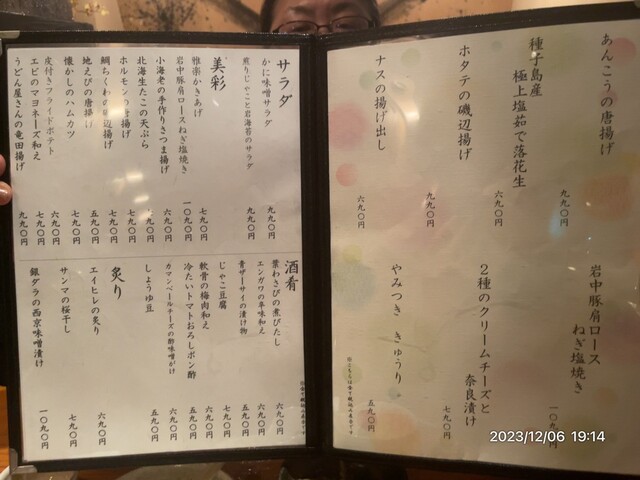 あんこうの唐揚げ
九九〇円
種子島産
極上塩茹で落花生
六九〇円
ホタテの磯辺揚げ
九九〇円
ナスの揚げ出し
六九〇円
岩中豚肩ロース
ねぎ塩焼き
一〇九〇円
2種のクリームチーズと
奈良漬け
七九〇円
やみつき きゅうり
五九〇円
サラダ
かに味噌サラダ
九九〇円
煎りじゃこと岩海苔のサラダ
九九〇円
美彩
雅楽かきあげ
七九〇円
岩中豚肩ロースねぎ塩焼き
一〇九〇円
小海老の手作りさつま揚げ
六九〇円
北海生たこの天ぷら
九〇円
ホルモンの唐揚げ
七九〇円
鯛ちくわの磯辺揚げ
七九〇円
地えびの唐揚げ
五九〇円
懐かしのハムカツ
七九〇円
皮付きフライドポテト
六九〇円
エビのマヨネーズ和え
七九〇円
うどん屋さんの竜田揚げ
九九〇円
酒肴
葉わさびの煮びたし
六九〇円
エンガワの辛味和え
六九〇円
青ザーサイの漬け物
五九〇円
じゃこ豆腐
七九〇円
軟骨の梅肉和え
六九〇円
冷たいトマトおろしポン酢
五九〇円
カマンベールチーズの酢味噌がけ
六九〇円
しょうゆ豆
五九〇円
炙り
エイヒレの炙り
六九〇円
サンマの桜干し
七九〇円
銀ダラの西京味噌漬け
一〇九〇円
2023/12/06 19:14